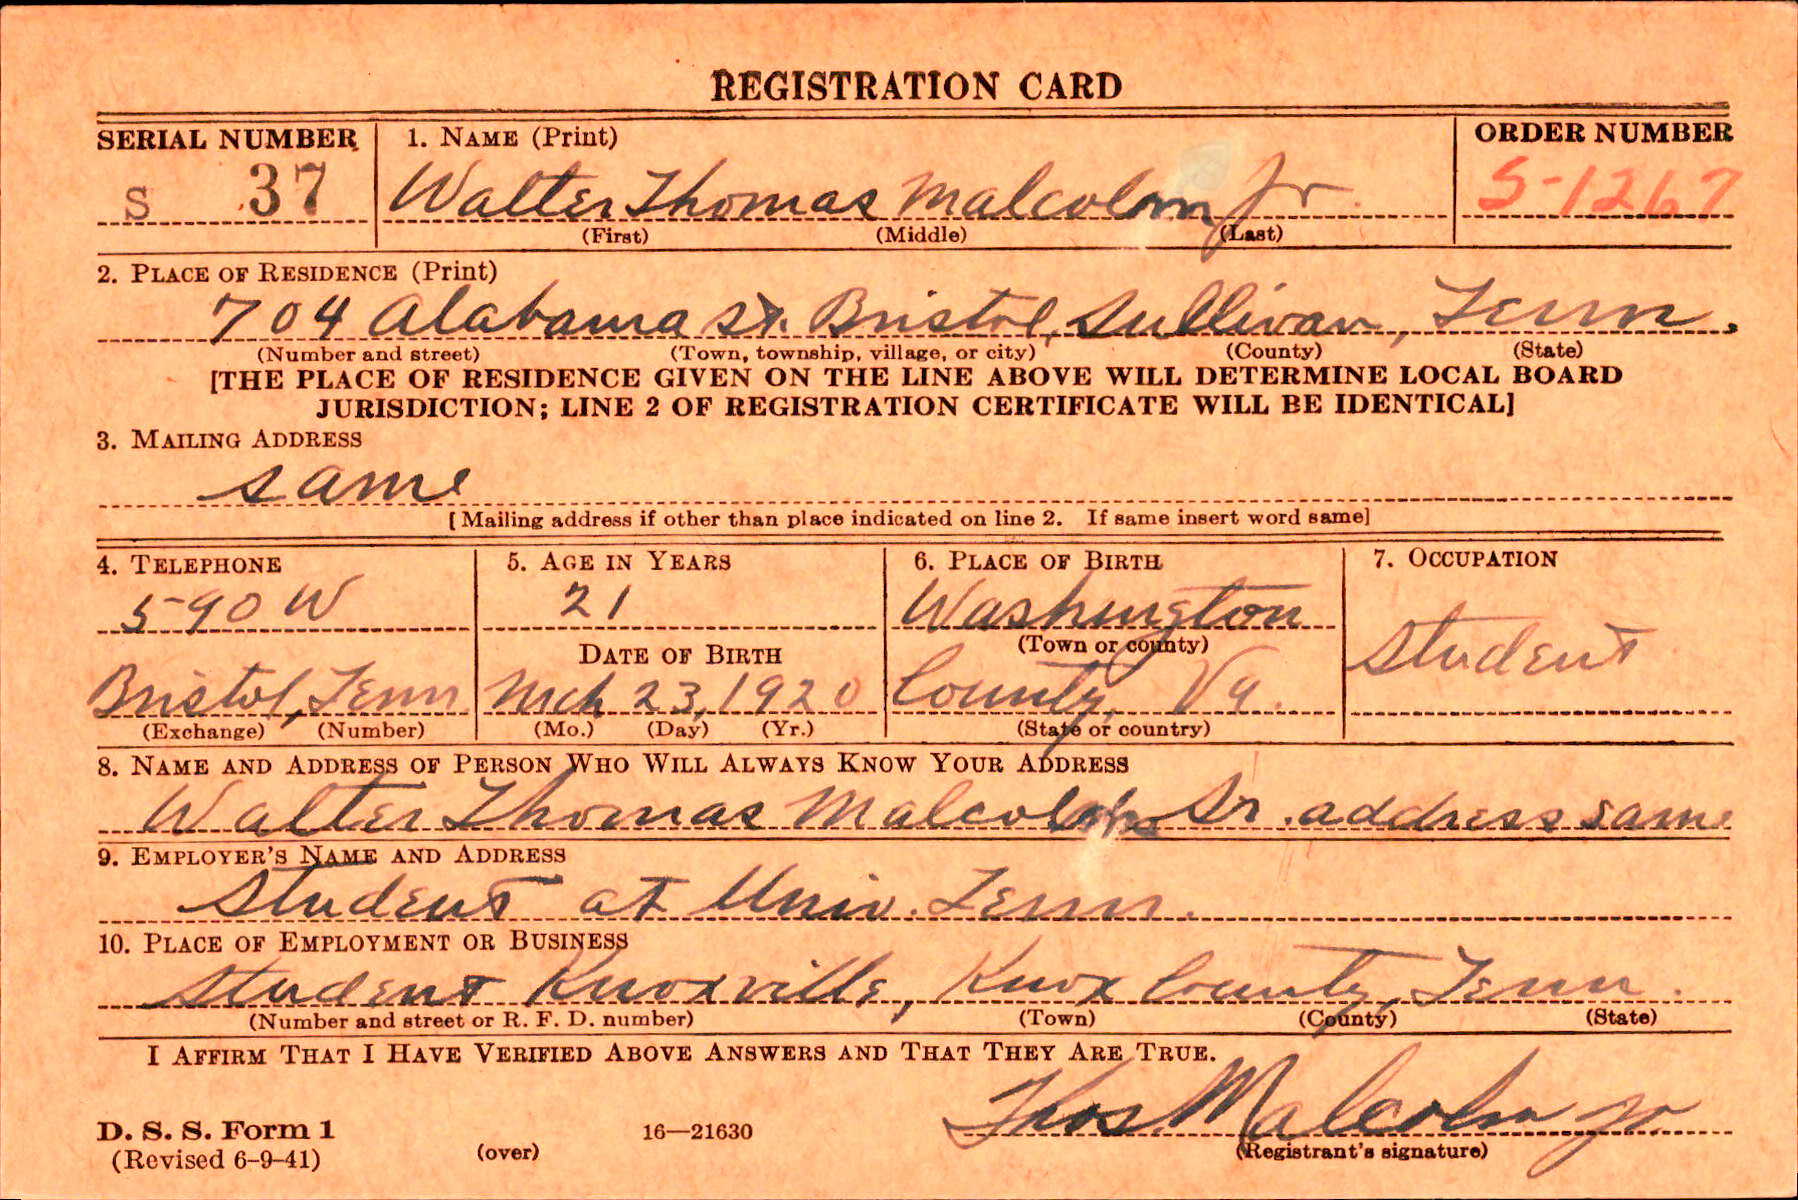 REGISTRATION CARD
SERIAL NUMBER 1. NAME (Print) ORDER NUMBER
S 37 Walter Thomas Malcolm Jr S-1267
(First) (Middle) (Last)
2. PLACE OF RESIDENCE (Print)
704 Alabama St. Bristol, Sullivan, Tenn.
(Number and street) (Town, township, village, or city) (County) (State)
[THE PLACE OF RESIDENCE GIVEN ON THE LINE ABOVE WILL DETERMINE LOCAL BOARD
JURISDICTION; LINE 2 OF REGISTRATION CERTIFICATE WILL BE IDENTICAL]
3. MAILING ADDRESS
same
[Mailing address if other than place indicated on line 2. If same insert word same]
4. TELEPHONE 5. AGE IN YEARS 6. PLACE OF BIRTH 7. OCCUPATION
590 W 21 Washington Student
DATE OF BIRTH (Town or county)
Bristol, Tenn Mch 23, 1920 County, Va.
(Exchange) (Number) (Mo.) (Day) (Yr.) (State or country)
8. NAME AND ADDRESS OF PERSON WHO WILL ALWAYS KNOW YOUR ADDRESS
Walter Thomas Malcolm Sr. address same
9. EMPLOYER'S NAME AND ADDRESS
Student at Univ. Tenn.
10. PLACE OF EMPLOYMENT OR BUSINESS
Student Knoxville, Knox County, Tenn.
(Number and street or R. F. D. number) (Town) (County) (State)
I AFFIRM THAT I HAVE VERIFIED ABOVE ANSWERS AND THAT THEY ARE TRUE.
Thos. Malcolm Jr
D. S. S. Form 1 16—21630
(Revised 6-9-41) (over) (Registrant's signature)